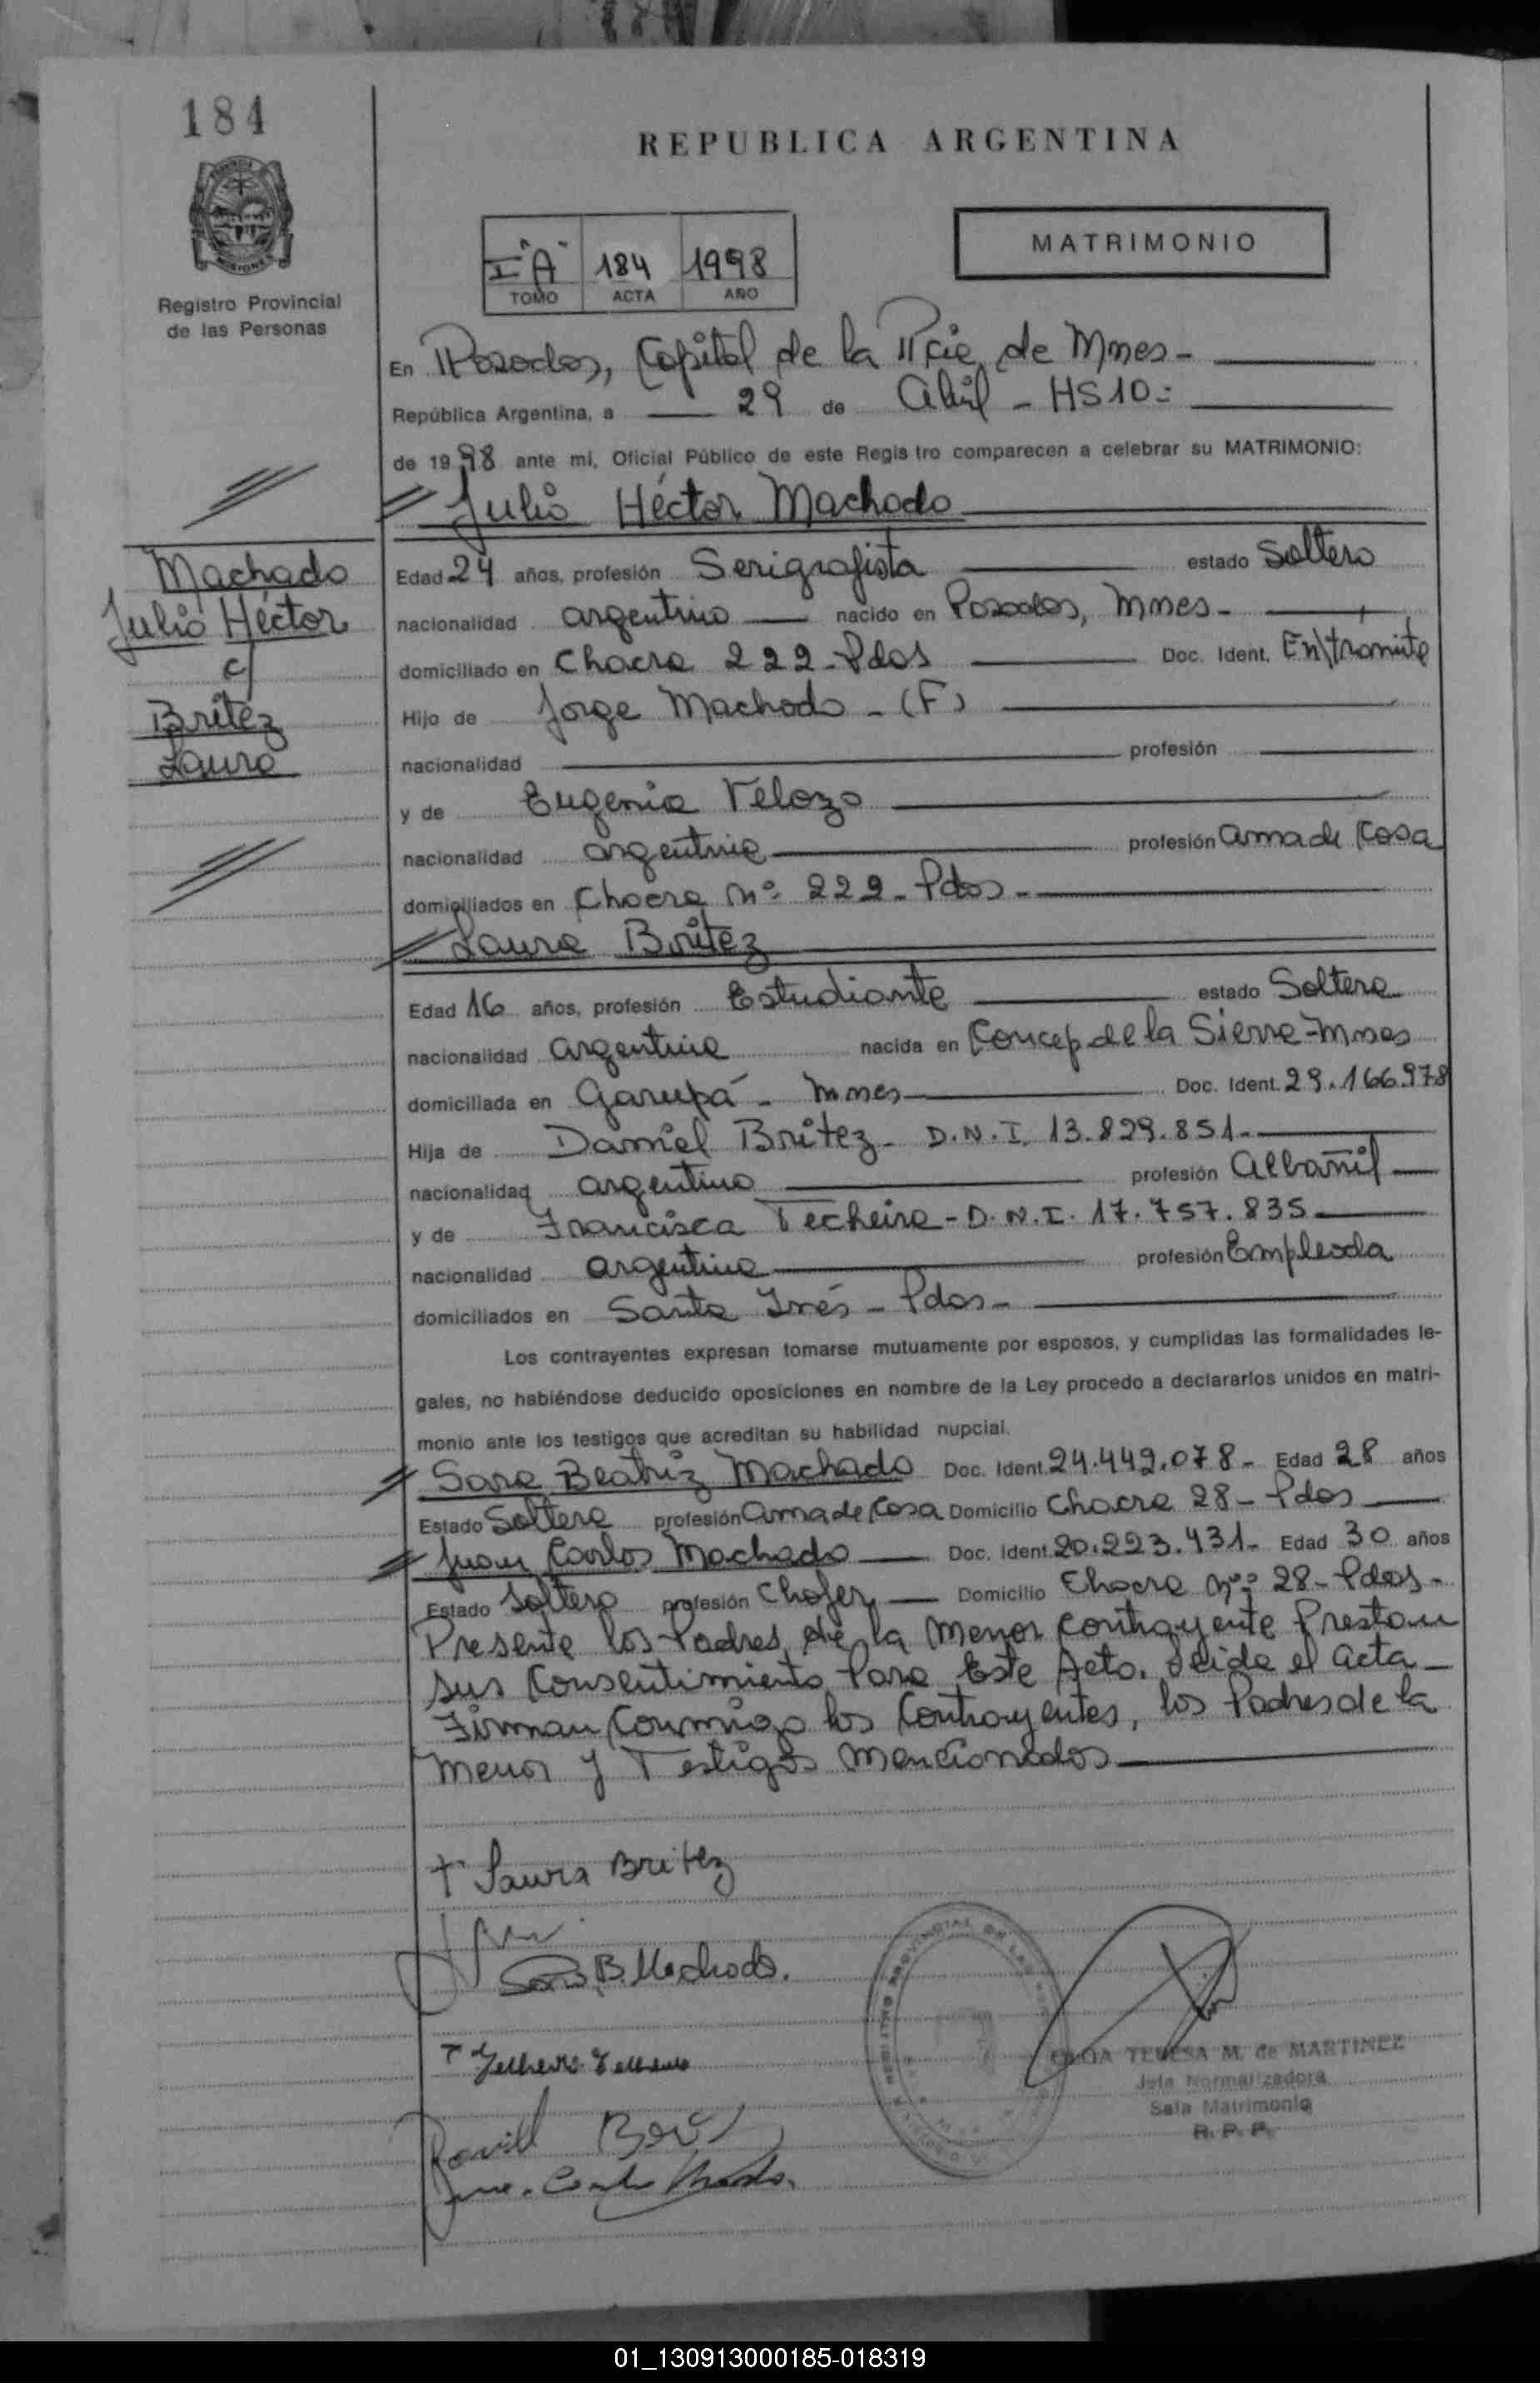 184
REPUBLICA ARGENTINA
MATRIMONIO
I "A" 184 1998
TOMO ACTA AÑO
Registro Provincial
de las Personas
En Posadas, Capital de la Pcie de Mnes-
República Argentina, a 29 de Abril - HS 10:
de 1998 ante mi, Oficial Público de este Registro comparecen a celebrar su MATRIMONIO:
Julio Héctor Machado
Machado
Julio Héctor
c/
Britez
Laura
Edad 24 años, profesión Serigrafista estado Soltero
nacionalidad argentino nacido en Posadas, Mnes-
domiciliado en Chacra 222-Pdas Doc. Ident. En/tramite
Hijo de Jorge Machado - (F)
nacionalidad profesión
y de Eugenia Velozo
nacionalidad argentina profesión ama de Casa
domiciliados en Chacra Nº 222-Pdas-
Laura Britez
Edad 16 años, profesión Estudiante estado Soltera
nacionalidad argentina nacida en Concep. de la Sierra-Mnes
domiciliada en Garupá - Mnes Doc. Ident. 29.166.978
Hija de Daniel Britez - D.N.I. 13.829.851-
nacionalidad argentino profesión Albañil
y de Francisca Techeira - D.N.I. 17.757.835
nacionalidad argentina profesión Empleada
domiciliados en Santa Inés - Pdas-
Los contrayentes expresan tomarse mutuamente por esposos, y cumplidas las formalidades le-
gales, no habiéndose deducido oposiciones en nombre de la Ley procedo a declararlos unidos en matri-
monio ante los testigos que acreditan su habilidad nupcial.
Sara Beatriz Machado Doc. Ident. 24.449.078- Edad 28 años
Estado Soltera profesión Ama de Casa Domicilio Chacra 28-Pdas
Juan Carlos Machado Doc. Ident. 20.223.431- Edad 30 años
Estado Soltero profesión Chofer Domicilio Chacra Nº 28-Pdas-
Presente los Padres de la Menor contrayente Prestan
sus Consentimiento Para Este Acto. Leida el acta-
Firman Conmigo los Contrayentes, los Padres de la
Menor y Testigos Mencionados
Laura Britez
B. Machado.
TERESA M. de MARTINEZ
Jefa Normalizadora
Sala Matrimonio
R. P. P.
01_130913000185-018319